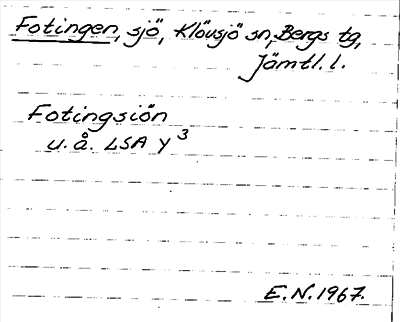 Fotingen, sjö, Klövsjö sn, Bergs tg,
Jämtl. l.
Fotingsiön
u. å. LSA Y 3
E.N. 1967.